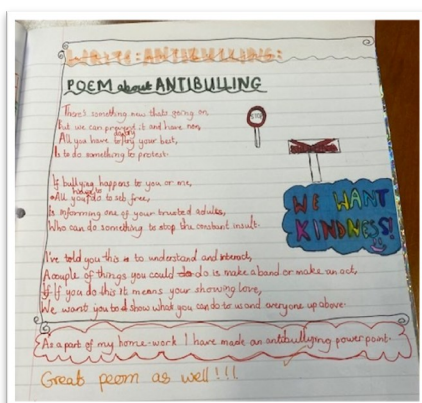 WRITE: ANTIBULLING:
POEM about ANTIBULLING
There's something new thats going on,
But we can prevend it and have non,
All you have to try your best,
Is to do something to protest.
STOP
If bullying happens to you or me,
All you do to set free,
Is informing one of your trusted adults,
Who can do something to stop the constant insult.
WE WANT
KINDNESS!
I've told you this to understand and interact,
A couple of things you could do is make a band or make an act,
If you do this it means your showing love,
We want you to show what you can do to us and everyone up above.
As a part of my home-work I have made an antibullying power point.
Great poem as well!!!